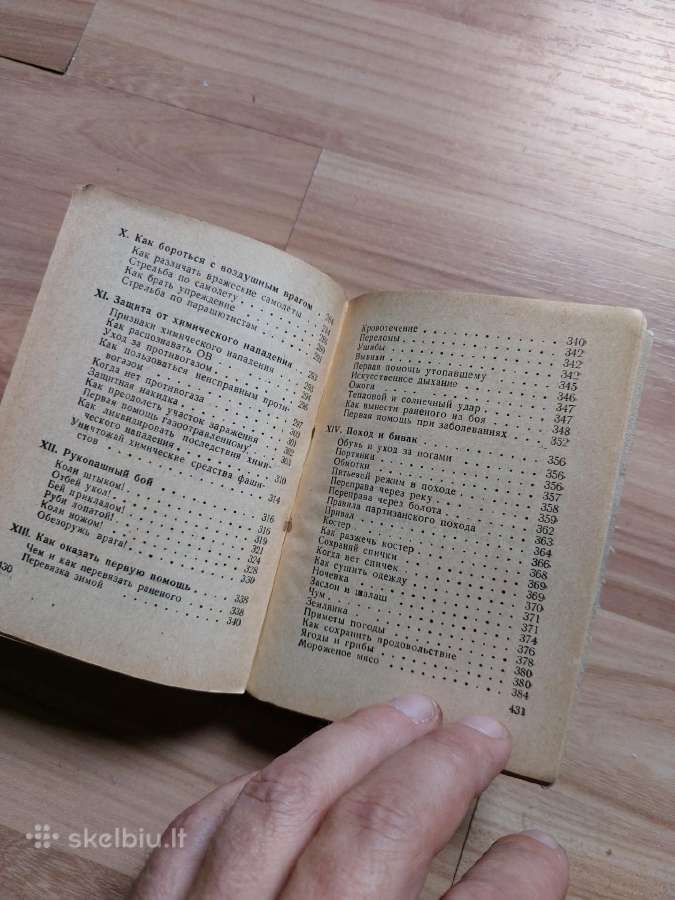 X. Как бороться с воздушным врагом
Как различать вражеские самолеты
Стрельба по самолету
Как брать упреждение
Стрельба по парашютистам
XI. Защита от химического нападения
Признаки химического нападения
Как распознавать ОВ
Уход за противогазом
Как пользоваться неисправным проти-
вогазом
Когда нет противогаза
Защитная накидка
Как преодолеть участок заражения
Первая помощь газоотравленному
Как ликвидировать последствия хими-
ческого нападения
Уничтожай химические средства фаши-
стов
XII. Рукопашный бой
Коли штыком!
Отбей укол!
Бей прикладом!
Руби лопатой!
Коли ножом!
Обезоружь врага!
XIII. Как оказать первую помощь
Чем и как перевязать раненого 338
Перевязка зимой 340
430
Кровотечение 340
Переломы 342
Ушибы 342
Вывихи 342
Первая помощь утопавшему 345
Искусственное дыхание 346
Ожоги 347
Тепловой и солнечный удар 347
Как вынести раненого из боя 348
Первая помощь при заболеваниях 352
XIV. Поход и бивак
Обувь и уход за ногами 356
Портянка 356
Обмотки 356
Питьевой режим в походе 357
Переправа через реку 358
Переправа через болота 359
Правила партизанского похода 362
Привал 363
Костер 364
Как разжечь костер 366
Сохраняй спички 368
Когда нет спичек 369
Как сушить одежду 369
Ночевка 370
Заслон и шалаш 371
Чум 371
Землянка 374
Приметы погоды 376
Как сохранить продовольствие 378
Ягоды и грибы 380
Мороженое мясо 384
431
skelbiu.lt